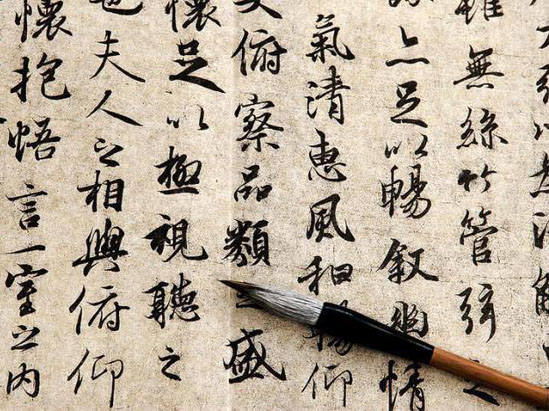 引以為流觴
雖無絲竹管弦之
詠亦足以暢敘幽情
氣清惠風和暢仰
大俯察品類之盛
懷足以極視聽之
也夫人之相與俯仰
懷抱悟言一室之內